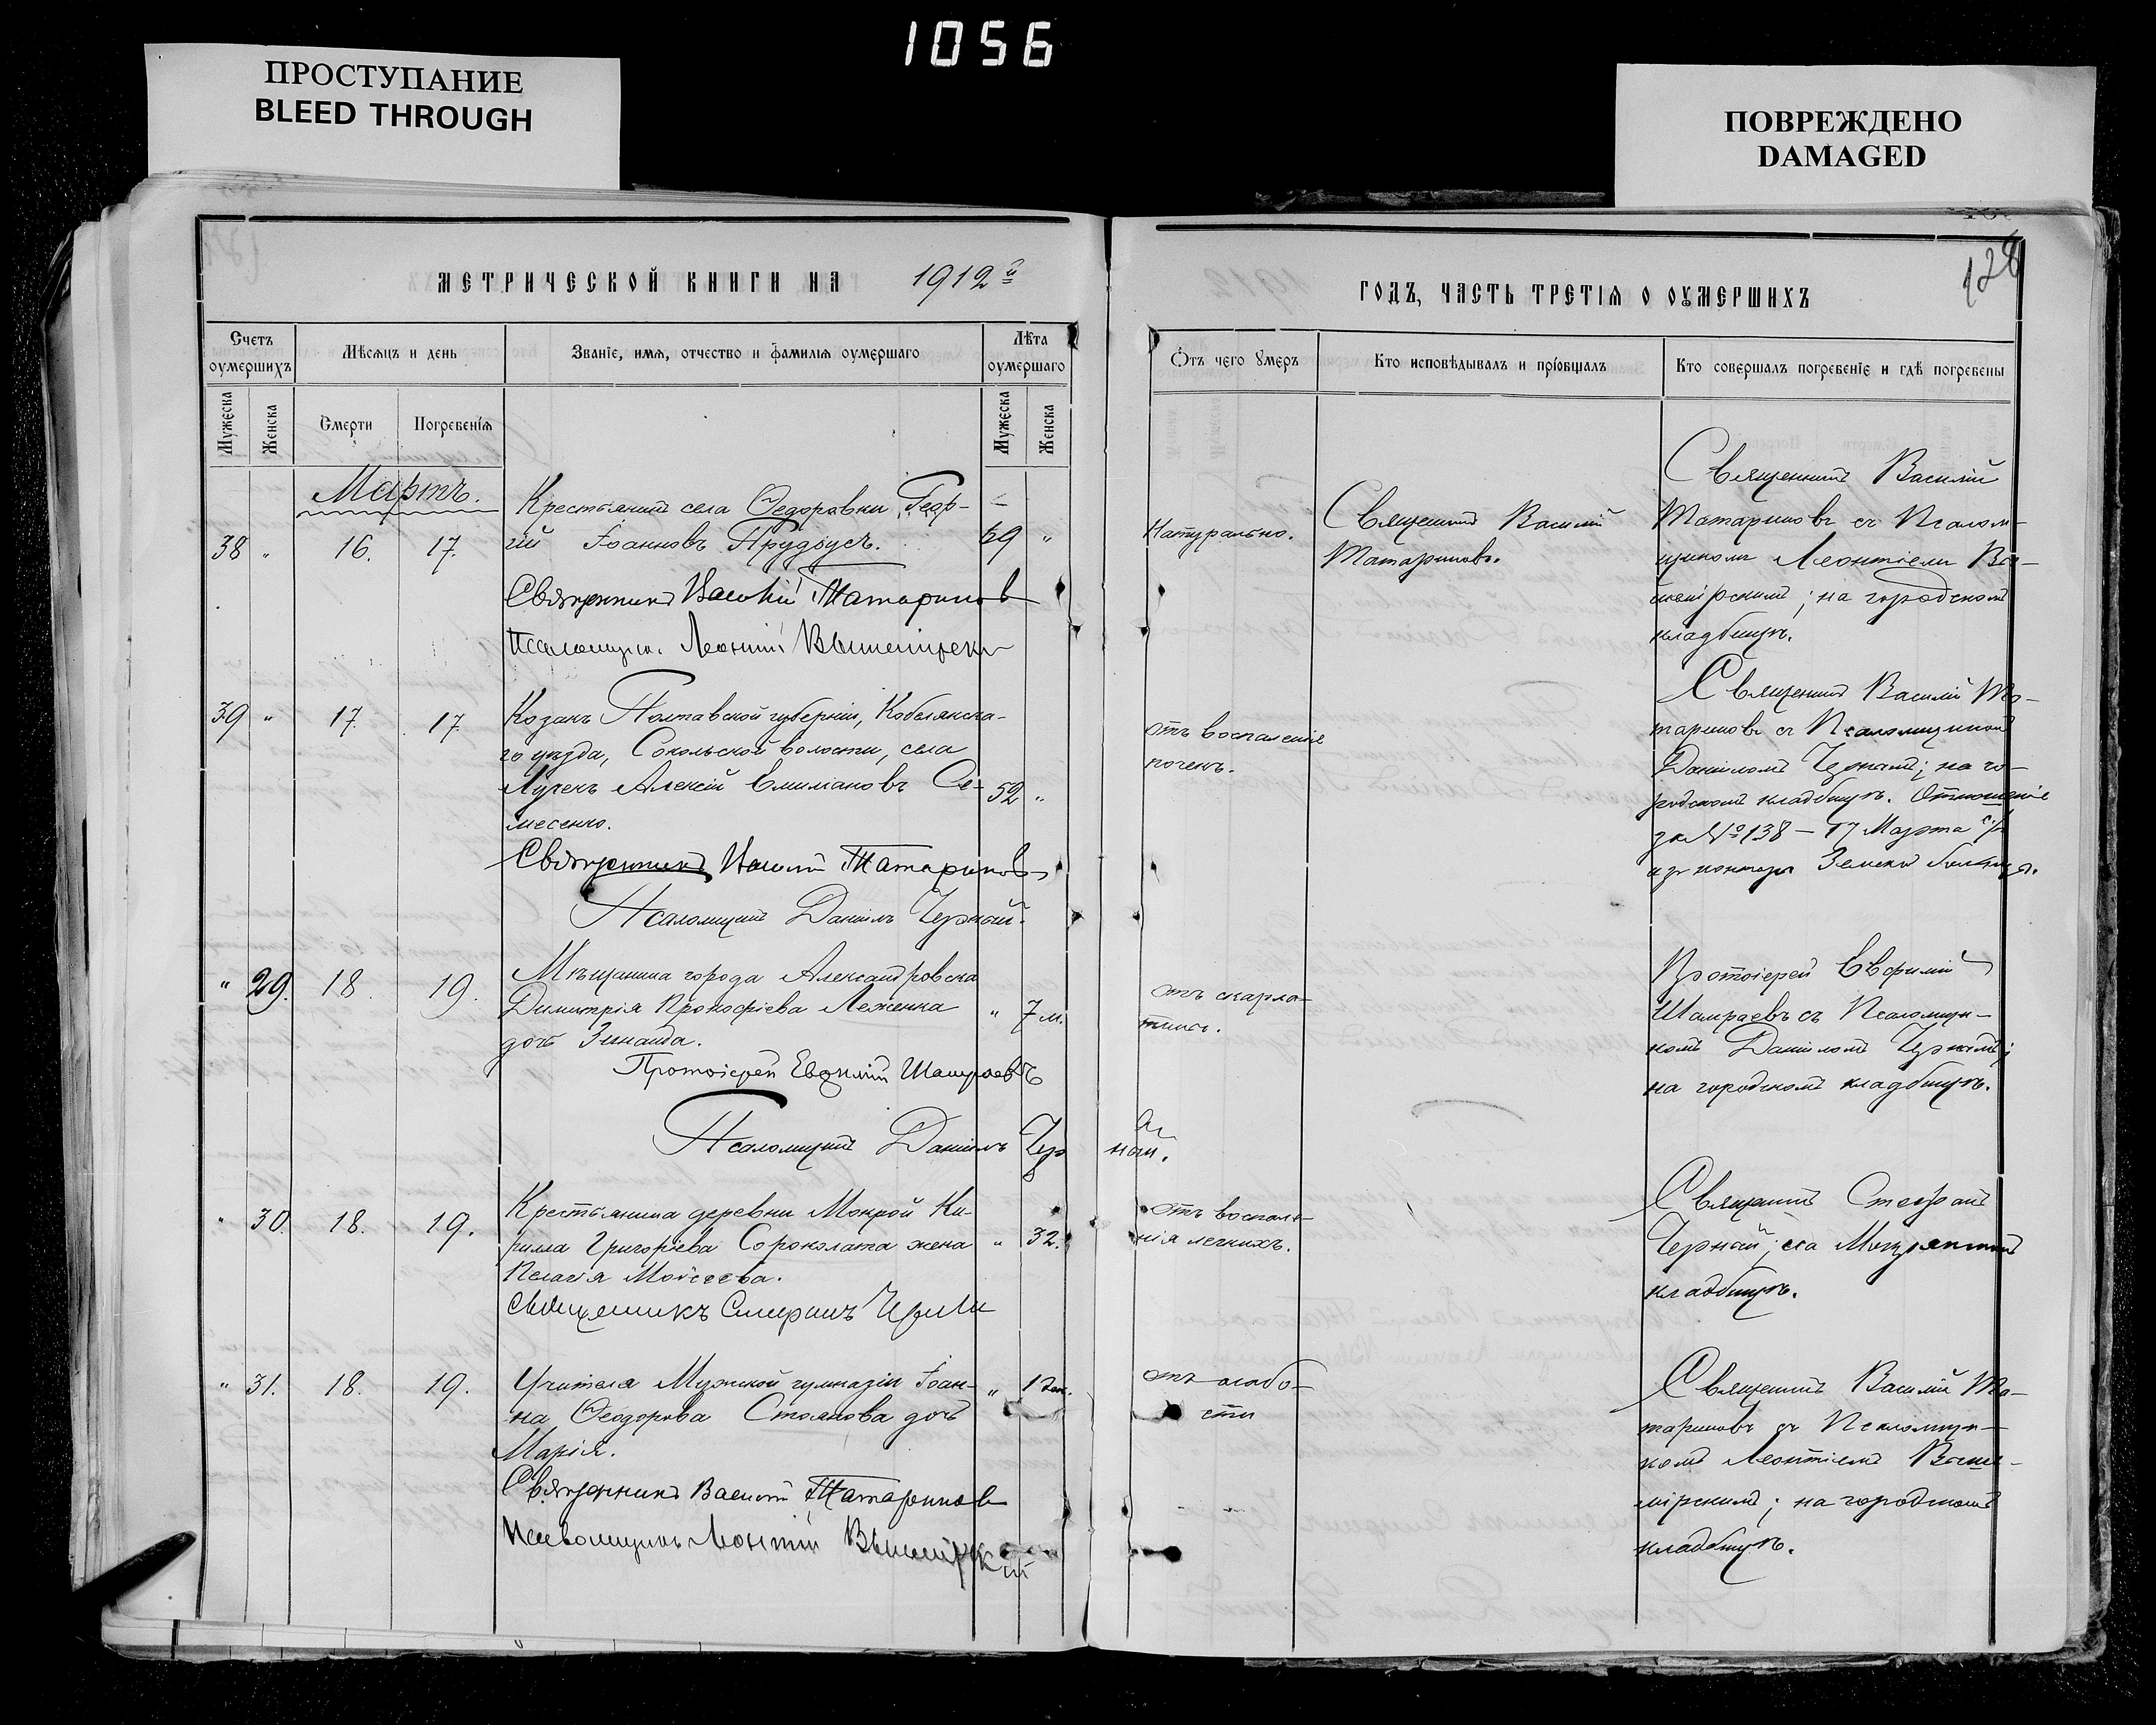 1056
ПРОСТУПАНИЕ
BLEED THROUGH
ПОВРЕЖДЕНО
DAMAGED
128
МЕТРИЧЕСКОЙ КНИГИ НА 1912й
ГОДЪ, ЧАСТЬ ТРЕТІЯ О ОУМЕРШИХЪ
Счетъ оумершихъ
Мѣсяцъ и день
Званіе, имя, отчество и фамилія оумершаго
Лѣта оумершаго
Отъ чего умеръ
Кто исповѣдывалъ и пріобщалъ
Кто совершалъ погребеніе и гдѣ погребены
Мужеска
Женска
Смерти
Погребенія
Мужеска
Женска
Мартъ.
38 " 16. 17.
Крестьянинъ села Ѳедоровки Геор-
гій Іоанновъ Прудіусъ. 59 "
Священникъ Василій Татариновъ
Псаломщикъ Леонтій Вышемірскі
Натурально.
Священникъ Василій
Татариновъ.
Священникъ Василій
Татариновъ съ Псалом-
щикомъ Леонтіемъ Вы-
шемірскимъ; на городскомъ
кладбищѣ.
39 " 17. 17.
Козакъ Полтавской губерніи, Кобелякска-
го уѣзда, Сокольской волости, села
Лучекъ Алексій Емиліановъ Се-
месенко. 52 "
Священникъ Василій Татариновъ
Псаломщикъ Даніилъ Черный.
отъ воспаленіе
почекъ.
Священникъ Василій Та-
тариновъ съ Псаломщикомъ
Даніиломъ Чернымъ; на го-
родскомъ кладбищѣ. Отношеніе
за № 138 – 17 Марта с/г
изъ конторы Земской больницы.
" 29. 18. 19.
Мѣщанина города Александровска
Димитрія Прокофіева Леженка
дочь Зинаида. " 7 м.
Протоіерей Евфимій Шамраевъ
Псаломщикъ Даніилъ Чер
ный.
отъ скарла-
тины.
Протоіерей Евфимій
Шамраевъ съ Псаломщи-
комъ Даніиломъ Чернымъ;
на городскомъ кладбищѣ.
" 30. 18. 19.
Крестьянина деревни Мокрой Ки-
рилла Григоріева Сороколата жена
Пелагія Моисеева. " 32.
Священникъ Стефанъ Черный
отъ воспале-
нія легкихъ.
Священникъ Стефанъ
Черный; на Мокрянскомъ
кладбищѣ.
" 31. 18. 19.
Учителя Мужской гимназіи Іоан-
на Ѳеодорова Стоянова дочь
Марія.
Священникъ Василій Татариновъ
Псаломщикъ Леонтій Вышемірскій
отъ слабо-
сти
Священникъ Василій Та-
тариновъ съ Псаломщи-
комъ Леонтіемъ Выше-
мірскимъ; на городскомъ
кладбищѣ.